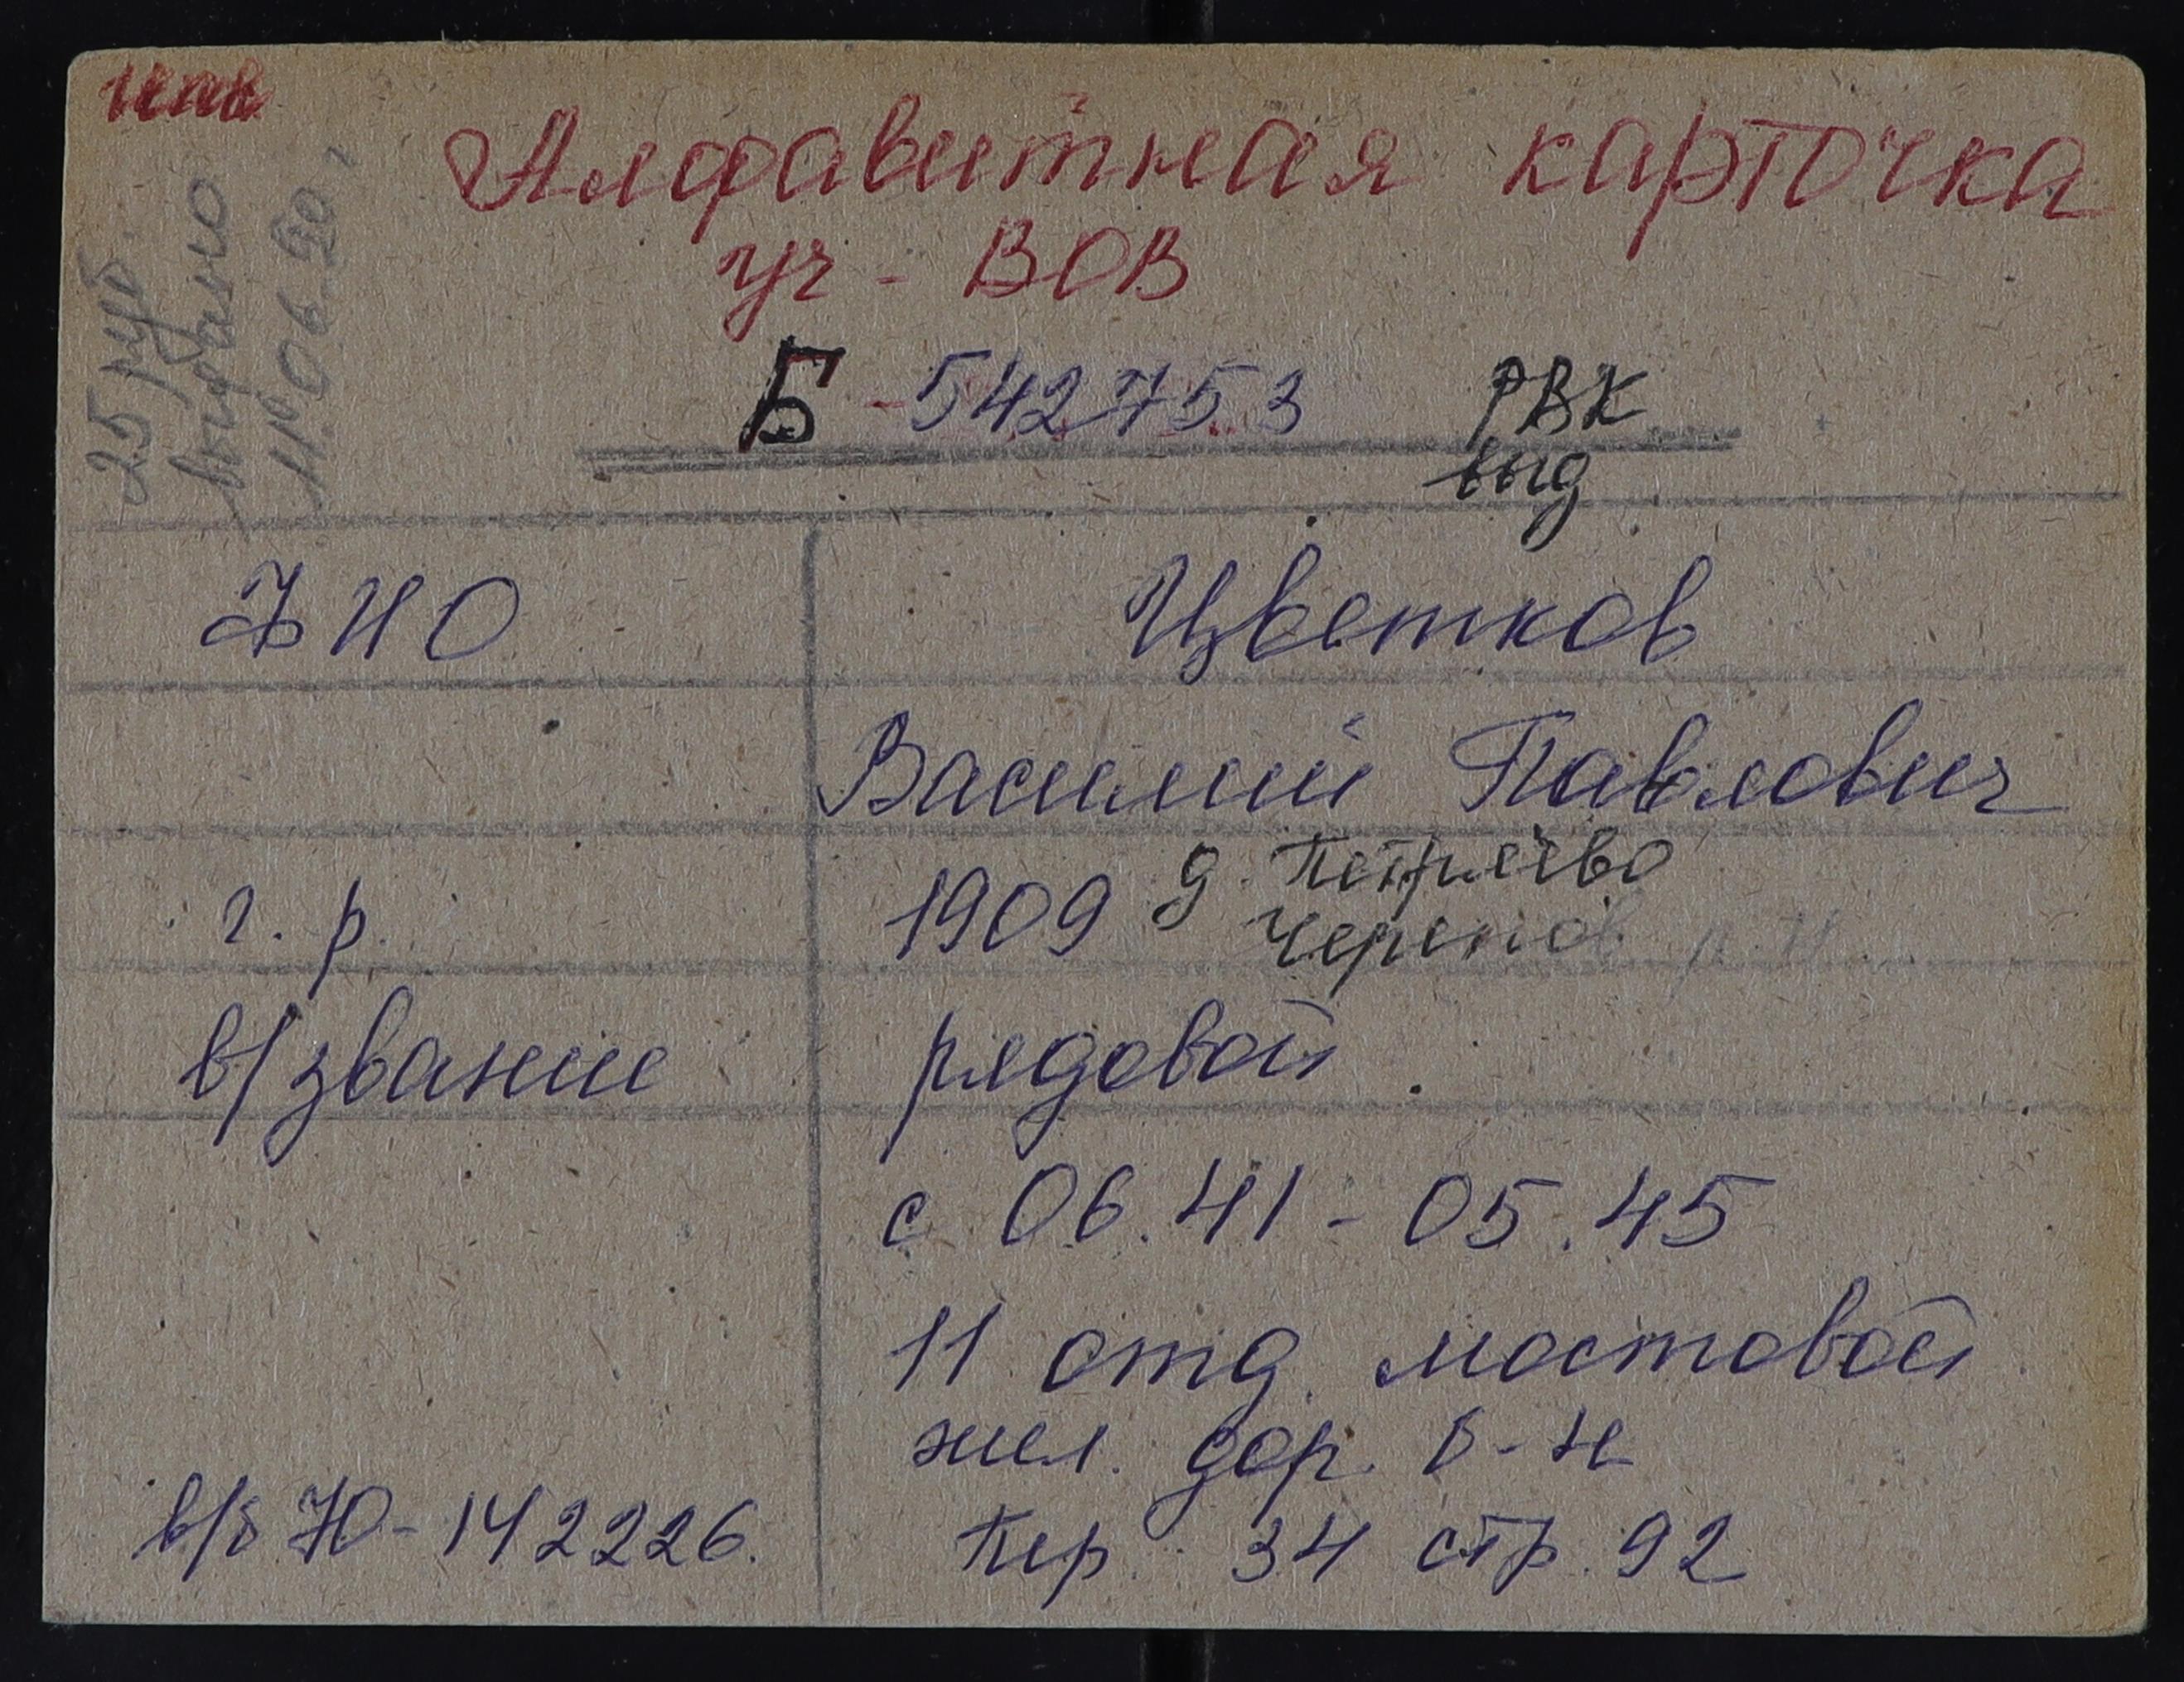 Алфавитная карточка
уч - ВОВ
25 руб.
выдано
11.06.90 г
Б - 542753 РВК
выд
ФИО Цветков
Василий Павлович
г. р. 1909 д. Петряево
Черепов р-н
в/звание рядовой
с 06.41 - 05.45
11 отд. мостовой
жел. дор. б-н
в/б Ю-142226. Пер. 34 стр. 92